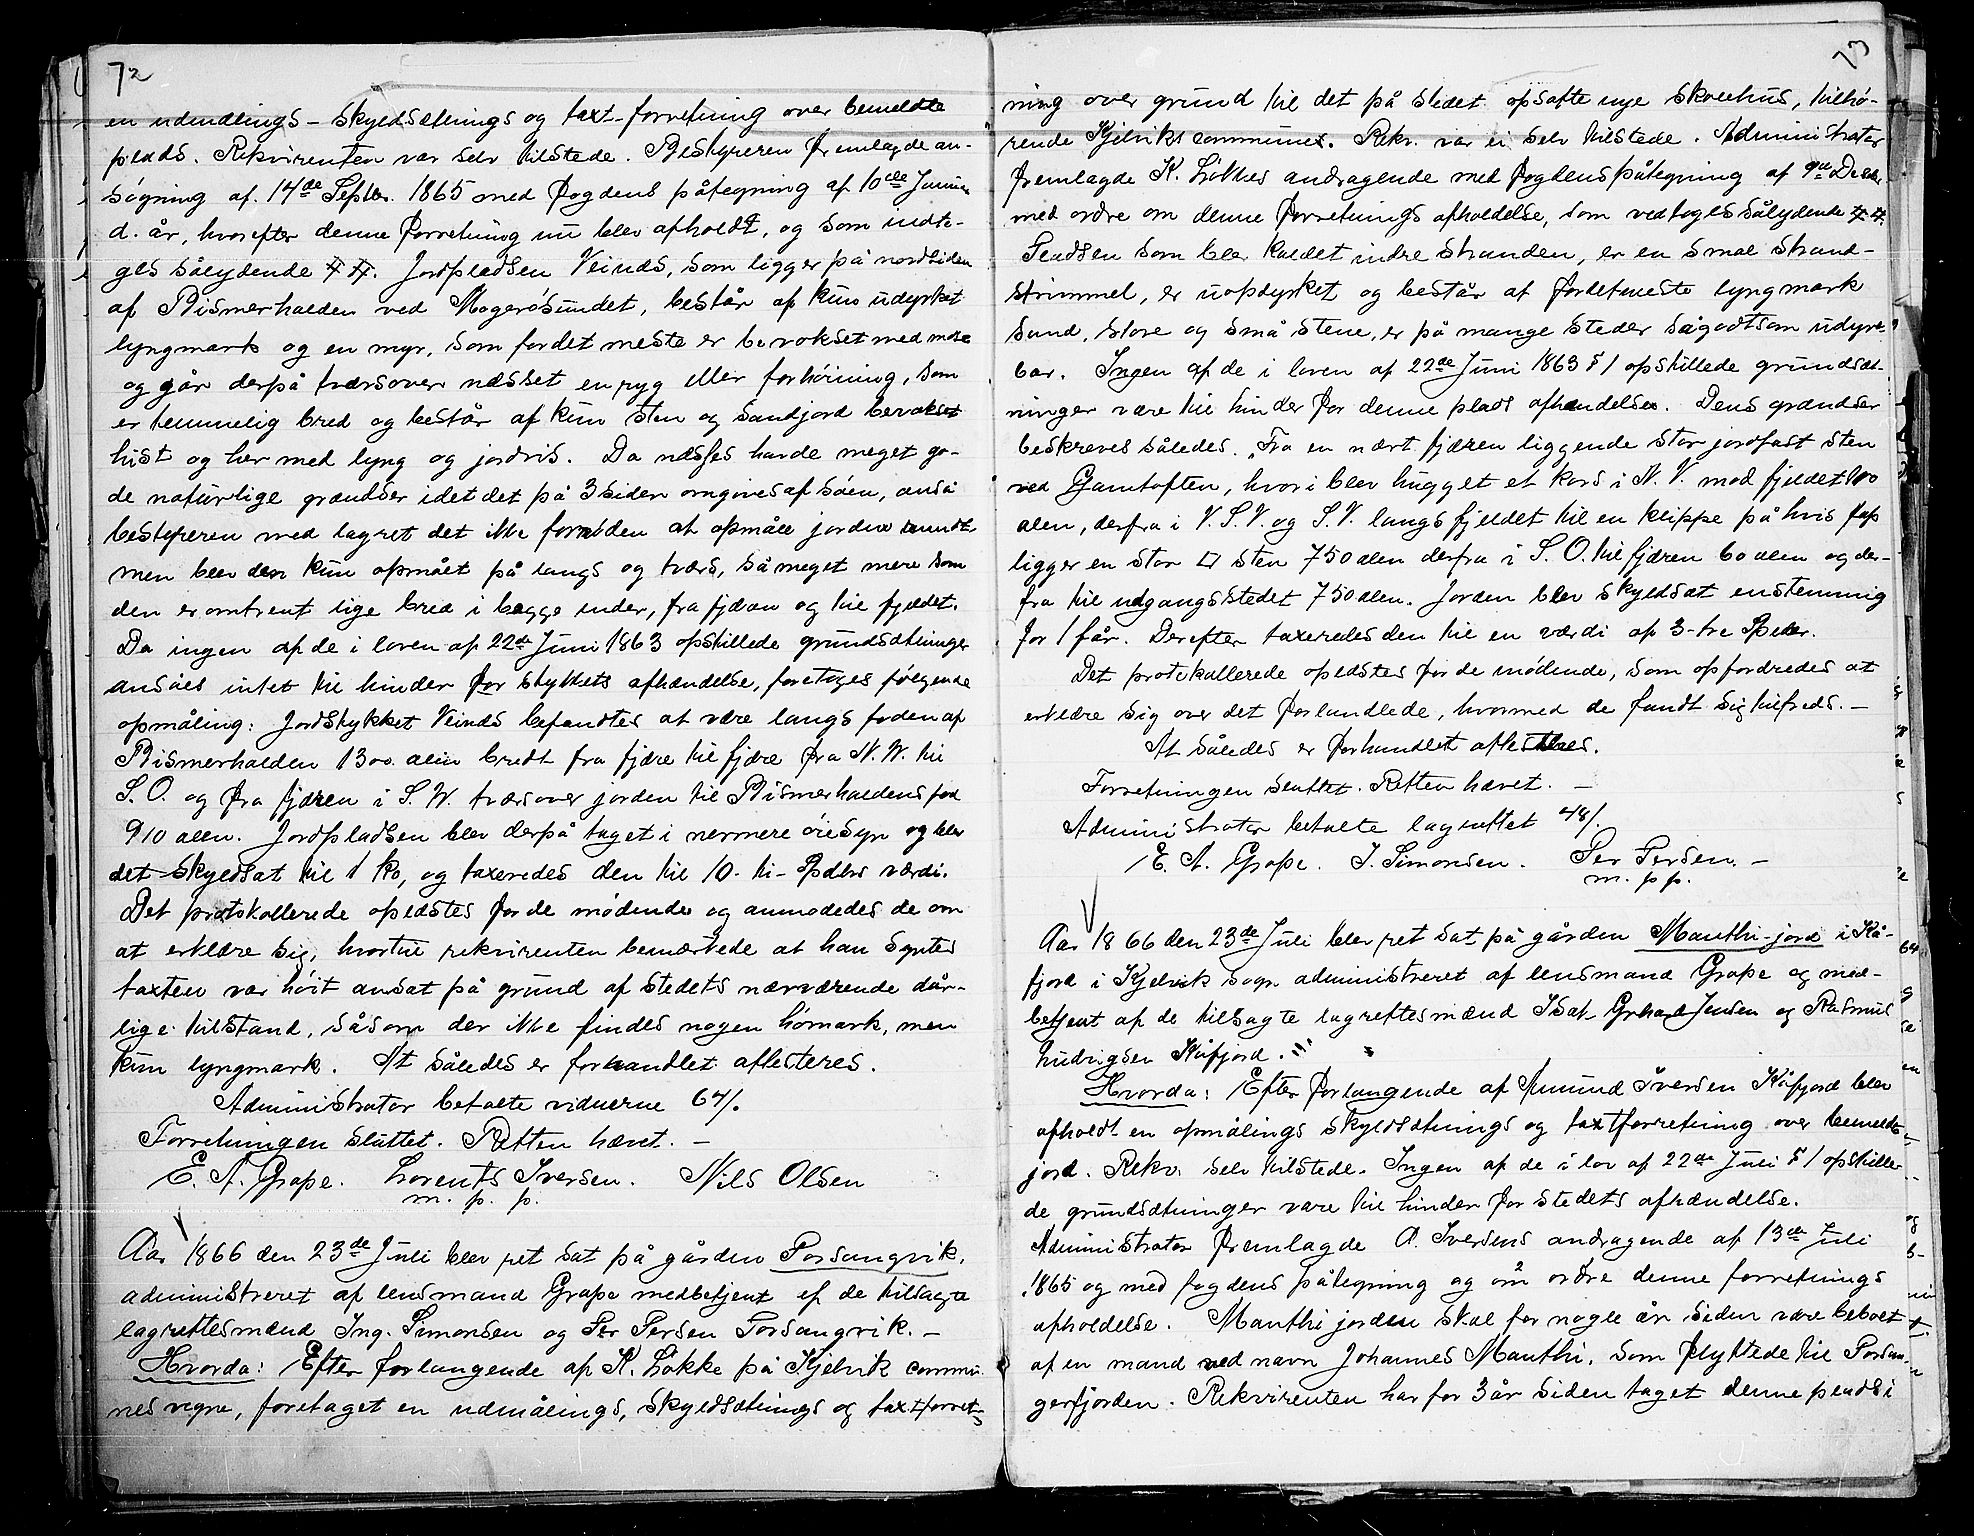 72
en udmålings-skyldsætnings og taxt-forretning over bemeldte
plads. Rekvirenten var selv tilstede. Bestyreren fremlagde an-
søgning af 14de Septbr. 1865 med fogdens påtegning af 10de Januar
d. år, hvorefter denne forretning nu blev afholdt, og som indta-
ges sålydende # #. Jordpladsen Veinæs, som ligger på nordsiden
af Bismerhalden ved Magerösundet, består af kun udyrket
lyngmark og en myr, som for det meste er bevokset med mose
og går derpå tværsover næsset en ryg eller forhöining, som
er temmelig bred og består af kun sten og sandjord bevokset
hist og her med lyng og jordris. Da næsset havde meget go-
de naturlige grændser idet det på 3 sider omgives af söen, anså
bestyreren med lagret det ikke fornöden at opmåle jorden rundt
men blev den kun opmålt på langs og tværs, så meget mere som
den er omtrent lige bred i begge ender, fra fjæren og til fjeldet.
Da ingen af de i loven af 22de Juni 1863 opstillede grundsætninger
ansåes intet til hinder for stykkets afhændelse, foretoges følgende
opmåling: Jordstykket Veinæs befandtes at være langs foden af
Bismerhalden 1300 alen bredt fra fjære til fjære fra N. W. til
S. O. og fra fjæren i S. W. tværsover jorden til Bismerhaldens fod
910 alen. Jordpladsen blev derpå taget i nærmere öiesyn og blev
det skyldsat til 1 ko, og taxeredes den til 10- ti- Spdlrs værdi.
Det protokollerede oplæstes for de mödende og anmodedes de om
at erklære sig, hvortil rekvirenten bemærkede at han syntes
taxten var höit ansat på grund af stedets nærværende dår-
lige tilstand, såsom der ikke findes nogen hömark, men
kun lyngmark. At således er forhandlet attesteres.
Administrator betalte vidnerne 64/.
Forretningen sluttet. Retten hævet. –
E. A. Grape. Lorents Iversen. Nils Olsen
m. p. p.
Aar 1866 den 23de Juli blev ret sat på gården Porsangvik,
administreret af lensmand Grape medbetjent af de tilsagte
lagrettesmænd Ing. Simonsen og Per Persen Porsangvik. –
Hvorda: Efter forlangende af K. Lökke på Kjelvik commu-
nes vegne, foretaget en udmålings, skyldsætnings og taxtforret-
73
ning over grund til det på stedet opsatte nye skolehus, tilhö-
rende Kjelviks communes. Rekv. var ei selv tilstede. Administrator
fremlagde K. Lökkes andragende med fogdens påtegning af 9de Decbr
med ordre om denne forretnings afholdelse, som vedtoges sålydende # #.
Pladsen som blev kaldet indre stranden, er en smal strand-
strimmel, er uopdyrket og består af fordetmeste lyngmark
sand, store og små stene, er på mange steder sågodtsom udyrk-
bar. Ingen af de i loven af 22de Juni 1863 § 1 opstillede grundsæt-
ninger være til hinder for denne plads afhændelse. Dens grændser
beskreves således. "Fra en nært fjæren liggende stor jordfast sten
ved Gamtoften, hvori blev hugget et kors i N. V. mod fjeldet 100
alen, derfra i V. S. V. og S. V. langs fjeldet til en klippe på hvis top
ligger en stor □ sten 750 alen derfra i S. O. til fjæren 60 alen og der-
fra til udgangsstedet 750 alen. Jorden blev skyldsat enstemmig
for 1 får. Derefter taxeredes den til en værdi af 3-tre Spdlr.
Det protokollerede oplæstes for de mödende, som opfordredes at
erklære sig over det forhandlede, hvormed de fandt sig tilfreds. –
At således er forhandlet attesteres.
Forretningen sluttet. Retten hævet. –
Administrator betalte lagrettet 48/.
E. A. Grape. I. Simonsen. Per Persen. –
m. p. p.
Aar 1866 den 23de Juli blev ret sat på gården Manthi-jord i Kå-
fjord i Kjelvik sogn administreret af lensmand Grape og med-
betjent af de tilsagte lagrettesmænd Isak Jensen og Rasmus
Kåfjord.
Hvorda: Efter forlangende af Amund Iversen Kåfjord blev
afholdt en opmålings skyldsætnings og taxtforretning over bemeldte
jord. Rekv. selv tilstede. Ingen af de i lov af 22de Juli § 1 opstille-
de grundsætninger være til hinder for stedets afhændelse.
Administrator fremlagde A. Iversens andragende af 13de Juli
1865 og med fogdens påtegning og om ordre denne forretnings
afholdelse. Manthi jorden skal for nogle år siden være beboet
af en mand ved navn Johannes Manthi, som flyttede til Porsan-
gerfjorden. Rekvirenten har for 3 år siden taget denne plads i